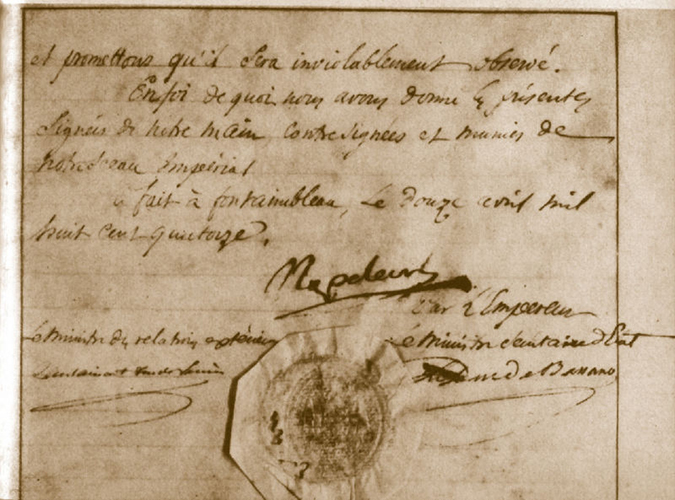 et promettons qu'il sera inviolablement observé.
En foi de quoi nous avons donné les présentes
signées de notre main, contresignées et munies de
notre Sceau Impérial
fait à fontainebleau, Le douze avril mil
huit cent quatorze.
Napoleon
Par L'Empereur
Le Ministre des relations extérieures
Le Ministre Secrétaire d'Etat
Duc de Bassano